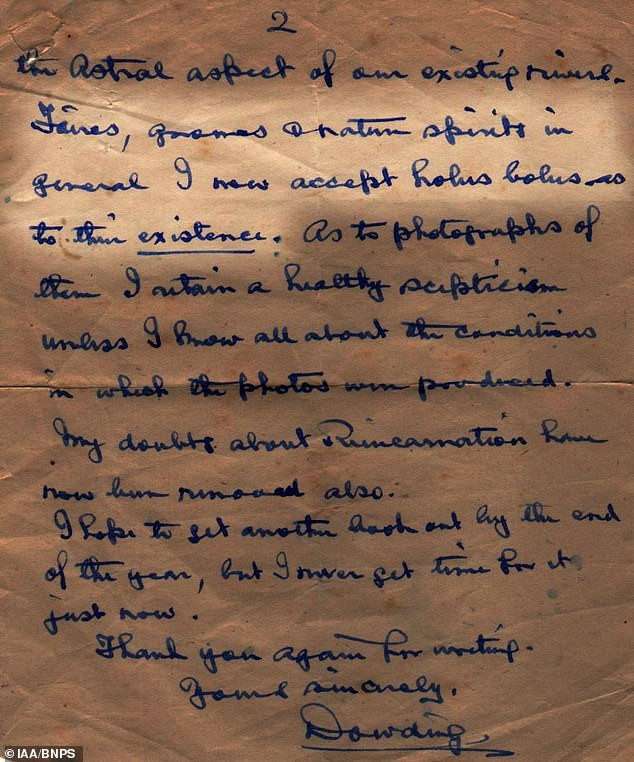 2
the Astral aspect of our existing rivers.
Fairies, gnomes & nature spirits in
general I now accept holus bolus as
to their existence. As to photographs of
them I retain a healthy scepticism
unless I know all about the conditions
in which the photos were produced.
My doubts about Reincarnation have
now been removed also.
I hope to get another book out by the end
of the year, but I never get time for it
just now.
Thank you again for writing.
Yours sincerely,
Dowding
© IAA/BNPS